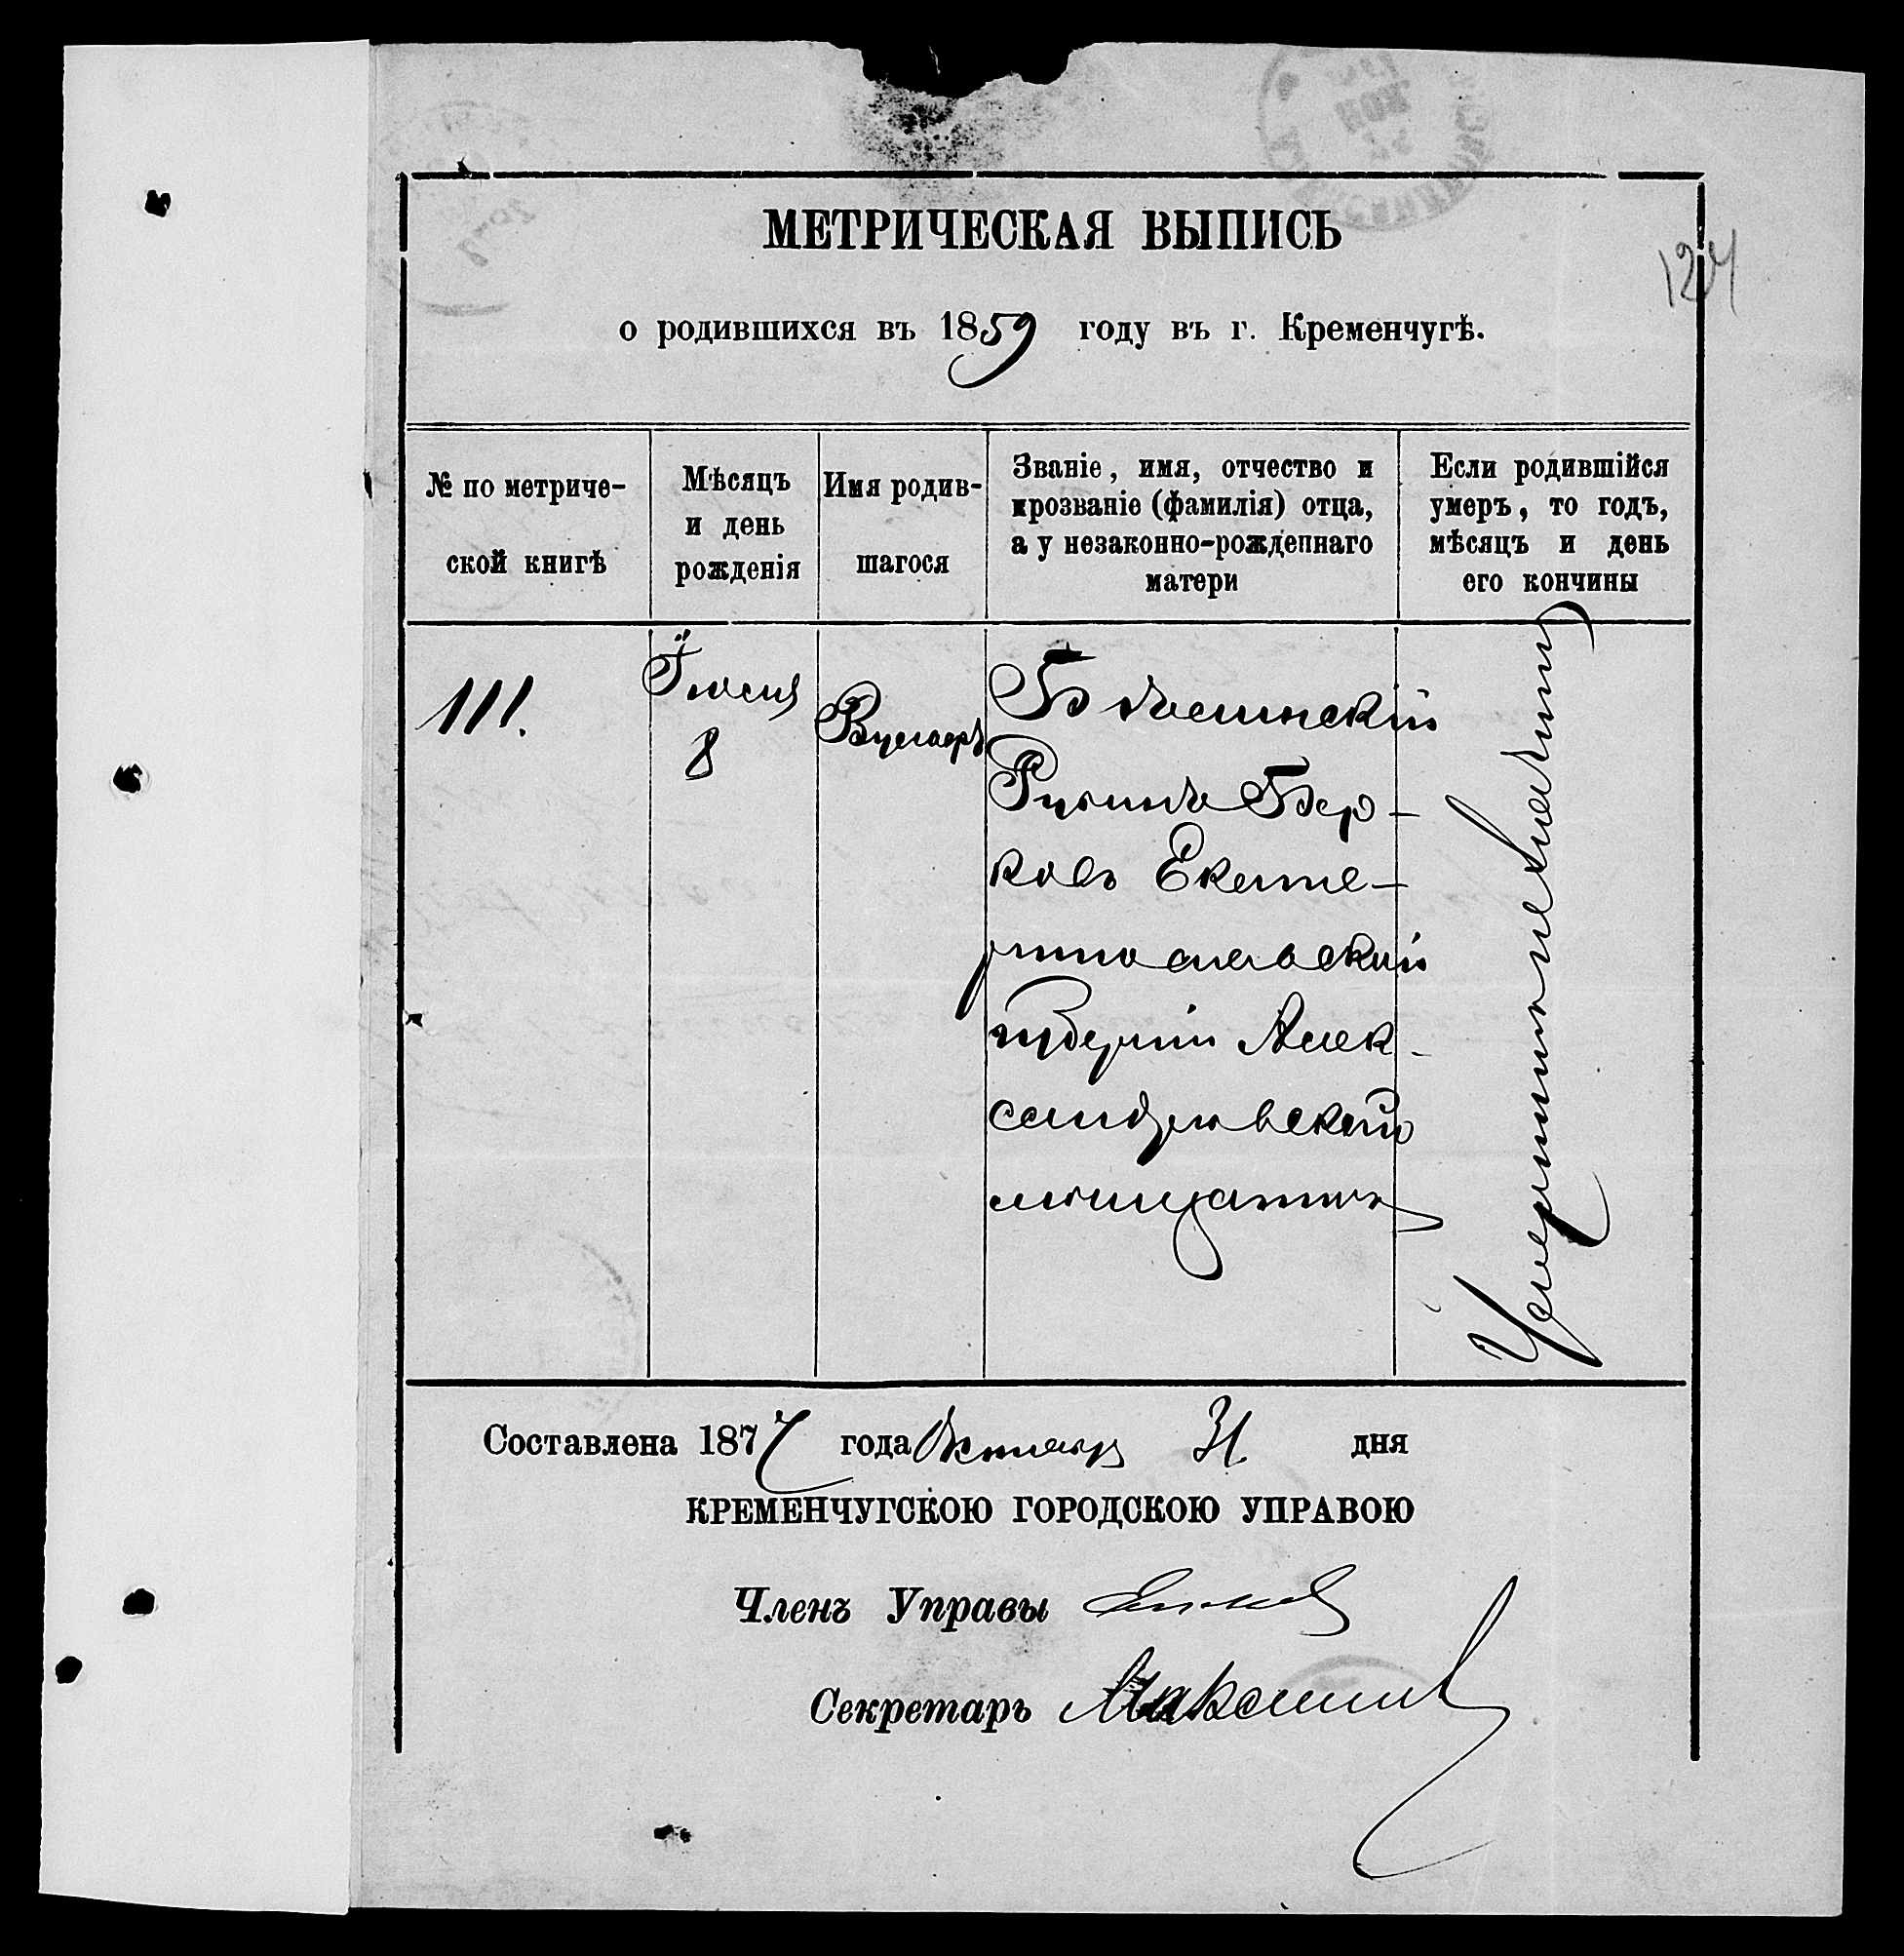 124
МЕТРИЧЕСКАЯ ВЫПИСЬ
о родившихся въ 1859 году въ г. Кременчугѣ.
№ по метриче-
ской книгѣ
Мѣсяцъ
и день
рожденія
Имя родив-
шагося
Званіе, имя, отчество и
прозваніе (фамилія) отца,
а у незаконно-рожденнаго
матери
Если родившійся
умеръ, то годъ,
мѣсяцъ и день
его кончины
111.
8
Бер-
ковъ Екате-
ринославской
губерніи Алек-
сандровскій
мѣщанинъ
Составлена 1877 года Октября 31 дня
КРЕМЕНЧУГСКОЮ ГОРОДСКОЮ УПРАВОЮ
Членъ Управы
Секретарь